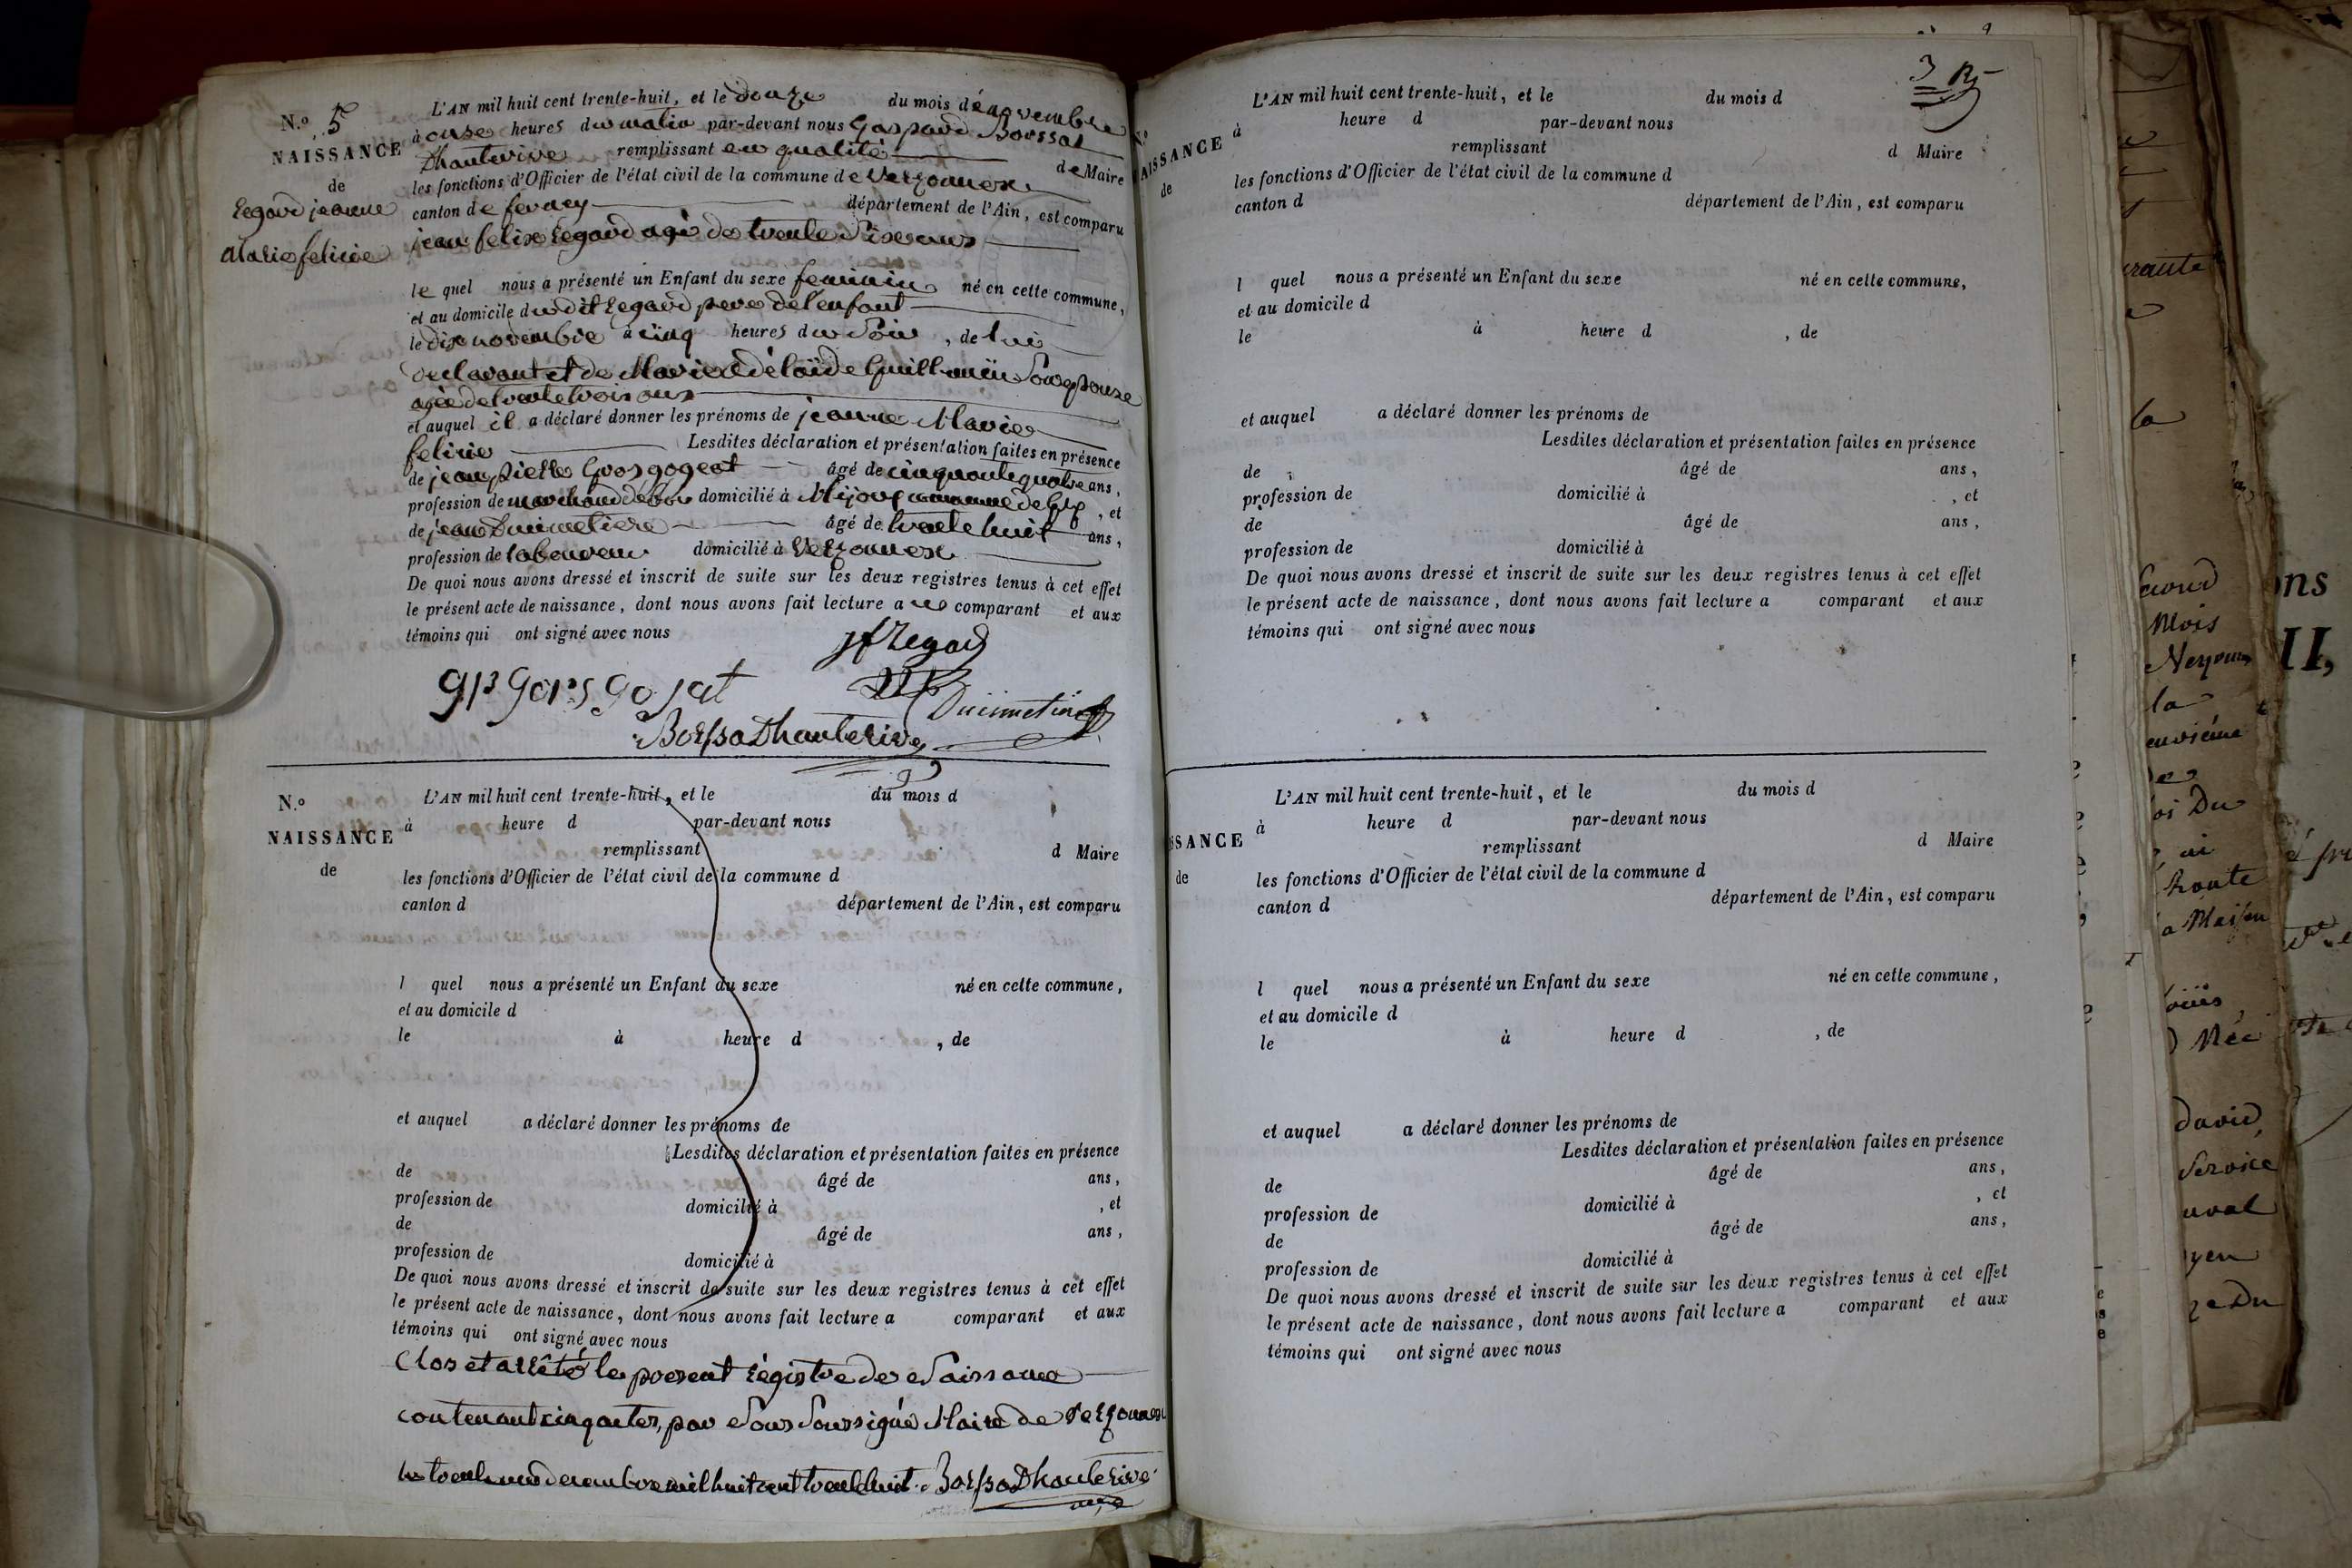 N.o 5
NAISSANCE
de
Regard jeanne
Marie felicie
L'AN mil huit cent trente-huit, et le douze du mois de novembre
à onse heures du matin par-devant nous Gaspard Borssat
Dhauterive remplissant en qualité de Maire
les fonctions d'Officier de l'état civil de la commune de Versonnex
canton de ferney département de l'Ain, est comparu
jean felix Regard agé de trente six ans
le quel nous a présenté un Enfant du sexe feminin né en cette commune,
et au domicile du dit Regard pere de l'enfant
le dix novembre à cinq heures du soir, de lui
declarant et de Marie adélaïde Guillaumin son epouse
agée de trente trois ans
et auquel il a déclaré donner les prénoms de jeanne Marie
felicie Lesdites déclaration et présentation faites en présence
de jean pierre Grosgogeat âgé de cinquante quatre ans,
profession de marchand de domicilié à Mijoux commune de Gex, et
de jean Duimetiere âgé de trente huit ans,
profession de laboureur domicilié à Versonnex
De quoi nous avons dressé et inscrit de suite sur les deux registres tenus à cet effet
le présent acte de naissance, dont nous avons fait lecture a comparant et aux
témoins qui ont signé avec nous
jf Regad
gp gors gojat
Borssa Dhauterive
N.o
NAISSANCE
de
L'AN mil huit cent trente-huit, et le du mois d
à heure d par-devant nous
remplissant d Maire
les fonctions d'Officier de l'état civil de la commune d
canton d département de l'Ain, est comparu
l quel nous a présenté un Enfant du sexe né en cette commune,
et au domicile d
le à heure d , de
et auquel a déclaré donner les prénoms de
Lesdites déclaration et présentation faites en présence
de âgé de ans,
profession de domicilié à , et
de âgé de ans,
profession de domicilié à
De quoi nous avons dressé et inscrit de suite sur les deux registres tenus à cet effet
le présent acte de naissance, dont nous avons fait lecture a comparant et aux
témoins qui ont signé avec nous
Clos et arrêté le present régistre de Naissance
contenant cinq actes, par Nous Soussigné Maire de Versonnex
le trente un decembre mil huit cent trente huit. Borssa Dhauterive
3
AISSANCE
de
L'AN mil huit cent trente-huit, et le du mois d
à heure d par-devant nous
remplissant d Maire
les fonctions d'Officier de l'état civil de la commune d
canton d département de l'Ain, est comparu
l quel nous a présenté un Enfant du sexe né en cette commune,
et au domicile d
le à heure d , de
et auquel a déclaré donner les prénoms de
Lesdites déclaration et présentation faites en présence
de âgé de ans,
profession de domicilié à , et
de âgé de ans,
profession de domicilié à
De quoi nous avons dressé et inscrit de suite sur les deux registres tenus à cet effet
le présent acte de naissance, dont nous avons fait lecture a comparant et aux
témoins qui ont signé avec nous
SSANCE
de
L'AN mil huit cent trente-huit, et le du mois d
à heure d par-devant nous
remplissant d Maire
les fonctions d'Officier de l'état civil de la commune d
canton d département de l'Ain, est comparu
l quel nous a présenté un Enfant du sexe né en cette commune,
et au domicile d
le à heure d , de
et auquel a déclaré donner les prénoms de
Lesdites déclaration et présentation faites en présence
de âgé de ans,
profession de domicilié à , et
de âgé de ans,
profession de domicilié à
De quoi nous avons dressé et inscrit de suite sur les deux registres tenus à cet effet
le présent acte de naissance, dont nous avons fait lecture a comparant et aux
témoins qui ont signé avec nous
la
Mois
la
David
Service